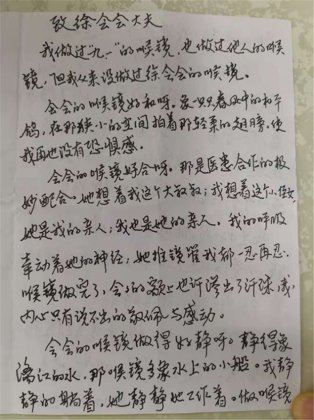 致徐会会大夫
我做过"九一"的喉镜,也做过他人的喉
镜,但我从来没做过徐会会的喉镜。
会会的喉镜好和呀。象一只春风中的和平
鸽,在那狭小的空间拍着那轻柔的翅膀,使
我再也没有恐惧感。
会会的喉镜好合呀。那是医患合作的极
妙配合。她想着我这个大叔叔;我想着这个小侄女,
她是我的亲人;我也是她的亲人。我的呼吸
牵动着她的神经;她推镜管我都一忍再忍。
喉镜做完了,会会的额上也汗渗出了汗珠,我
内心只有说不出的敬佩与感动。
会会的喉镜做得好静呀。静得象
漓江的水,那喉镜多象水上的小船。我静
静的躺着,她静静地工作着。做喉镜